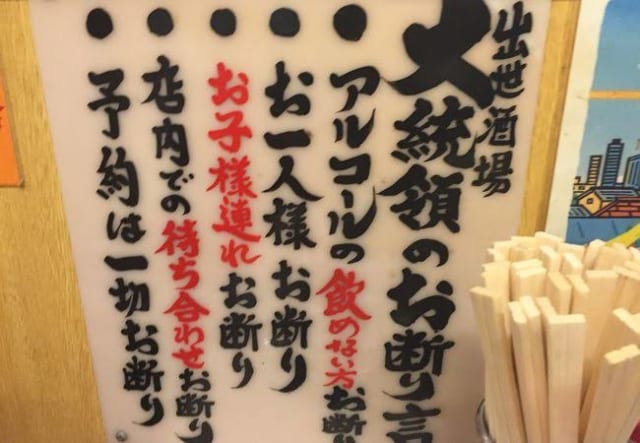 出世酒場
大統領のお断り言
● アルコールの飲めない方お断り
● お一人様お断り
● お子様連れお断り
● 店内での待ち合わせお断り
● 予約は一切お断り